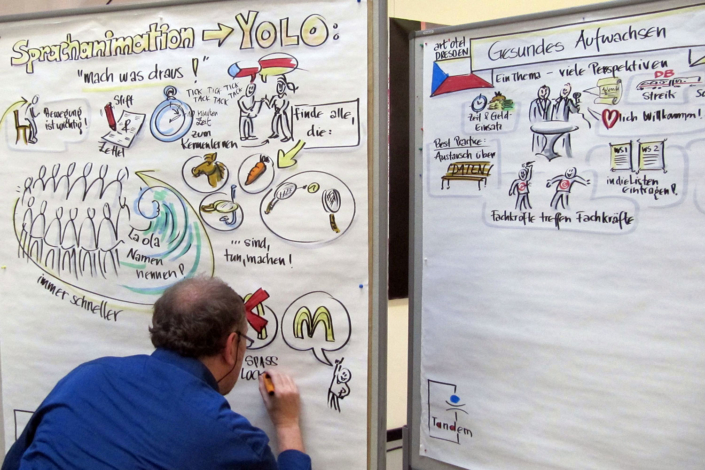 Sprachanimation → YOLO:
"mach was draus!"
Bewegung
ist wichtig!
Stift
Zettel
TICK TICK TICK
TACK TACK TACK
zum
Kennenlernen
Finde alle,
die:
La ola
Namen
nennen!
immer schneller
... sind,
tun, machen!
M
SPASS
art'otel
DRESDEN
Gesundes Aufwachsen
Ein Thema - viele Perspektiven
Zeit & Geld-
Einsatz
DB
STREIK
lich Willkommen!
Best Practice:
Austausch über
DATEN
WS 1
WS 2
in die Listen
eintragen!
Fachkräfte treffen Fachkräfte
Tandem